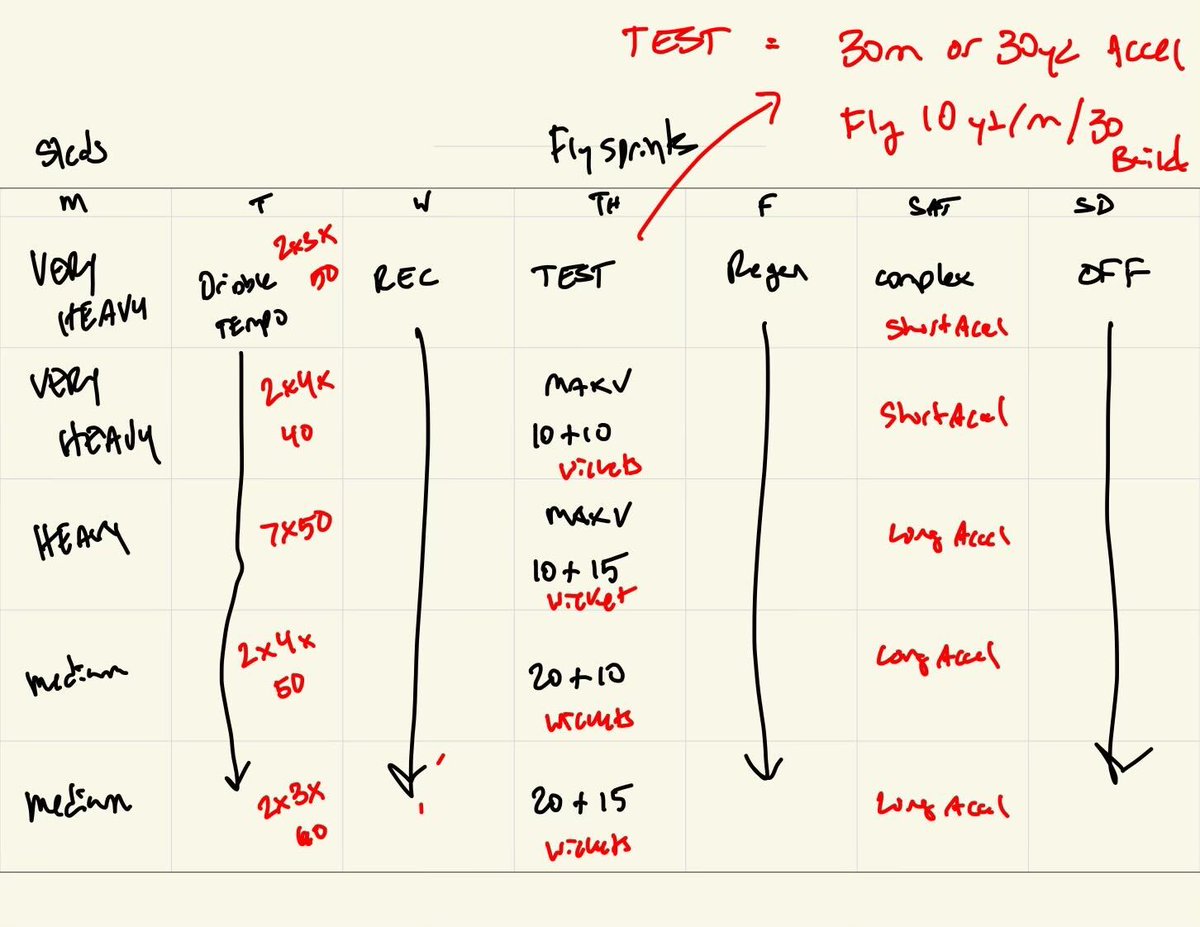 TEST = 30m or 30yd Accel
Fly 10 yd/m/30
Build
Sleds
Fly sprints
M T W TH F SAT SD
VERY HEAVY
Dribble TEMPO
2x3x 50
REC
TEST
Regen
complex
Short Accel
OFF
VERY HEAVY
2x4x 40
MAXV
10+10
wickets
Short Accel
HEAVY
7x50
MAXV
10+15
wicket
Long Accel
medium
2x4x 50
20+10
wickets
Long Accel
medium
2x3x 60
20+15
wickets
Long Accel